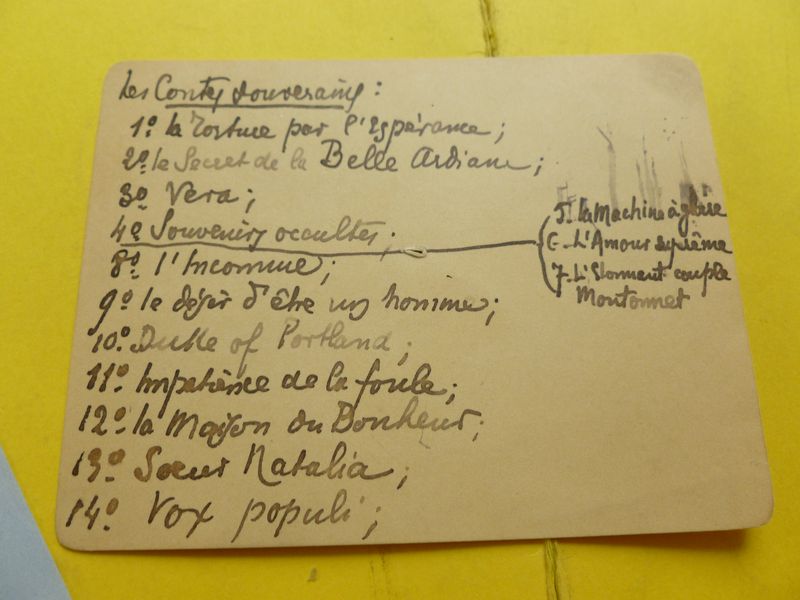 Les Contes souverains :
1º. la Torture par l'Espérance ;
2º. le Secret de la Belle Ardiane ;
3º Vera ;
4º Souvenirs occultes ;
5. La Machine à gloire
6. L'Amour suprême
7. L'Etonnant couple
Moutonnet
8º l'Inconnue ;
9º le désir d'être un homme ;
10º. Duke of Portland ;
11º Impatience de la foule ;
12º. la Maison du Bonheur ;
13º Sœur Natalia ;
14º Vox populi ;